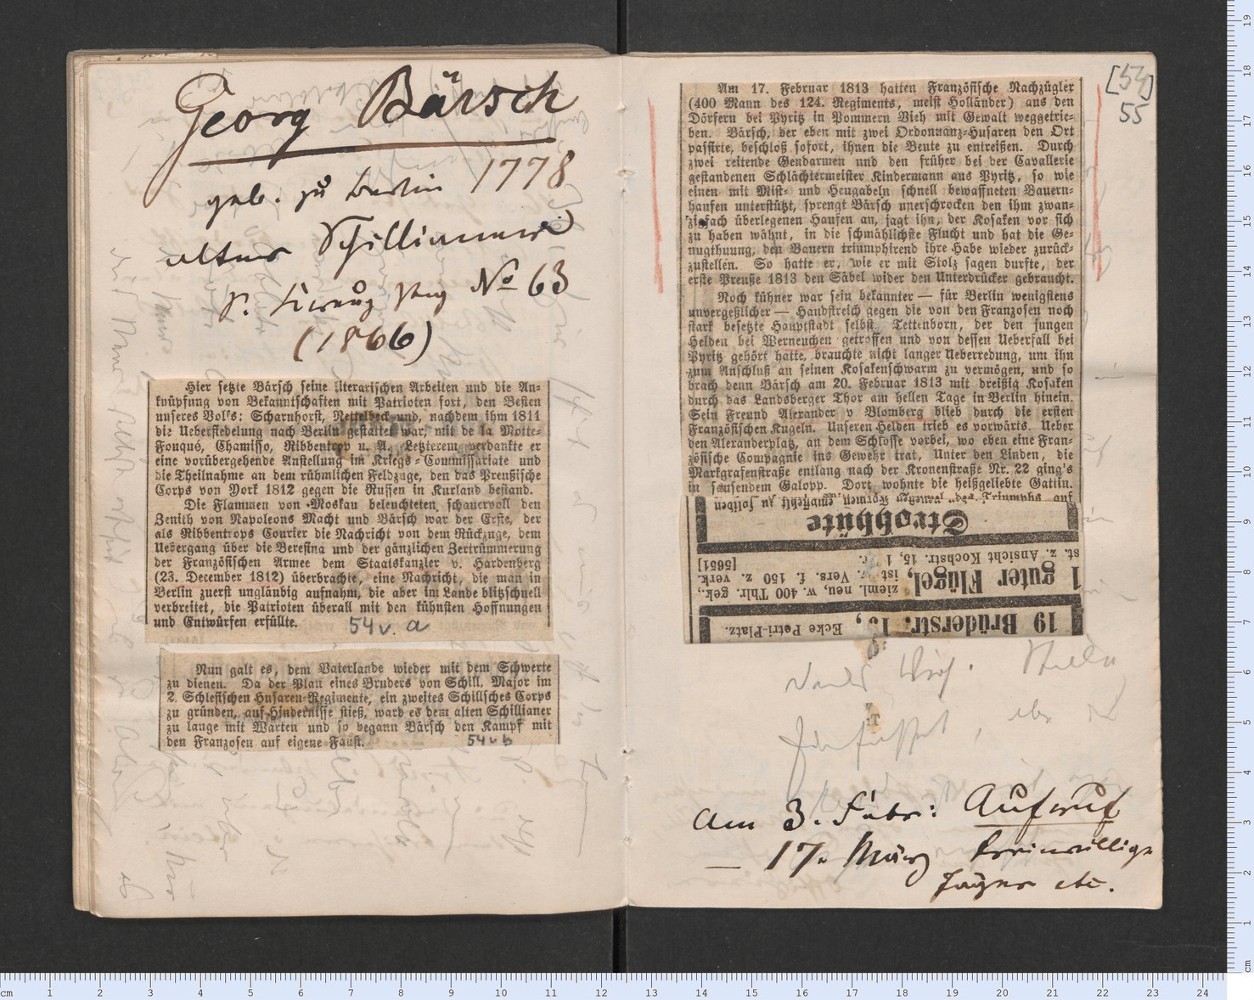 Georg Bärsch
geb. zu Berlin 1778
alter Schillianer
s. Kreuz Ztng No 63
(1866)
Hier setzte Bärsch seine literarischen Arbeiten und die An-
knüpfung von Bekanntschaften mit Patrioten fort, den Besten
unseres Volks: Scharnhorst, Nettelbeck und, nachdem ihm 1811
die Uebersiedelung nach Berlin gestattet war, mit de la Motte-
Fouqué, Chamisso, Ribbentrop u. A. Letzterem verdankte er
eine vorübergehende Anstellung im Kriegs-Commissariate und
die Theilnahme an dem rühmlichen Feldzuge, den das Preußische
Corps von York 1812 gegen die Russen in Kurland bestand.
Die Flammen von Moskau beleuchteten schauervoll den
Zenith von Napoleons Macht und Bärsch war der Erste, der
als Ribbentrops Courier die Nachricht von dem Rückzuge, dem
Uebergang über die Beresina und der gänzlichen Zertrümmerung
der Französischen Armee dem Staatskanzler v. Hardenberg
(23. December 1812) überbrachte, eine Nachricht, die man in
Berlin zuerst ungläubig aufnahm, die aber im Lande blitzschnell
verbreitet, die Patrioten überall mit den kühnsten Hoffnungen
und Entwürfen erfüllte.
54v. a
Nun galt es, dem Vaterlande wieder mit dem Schwerte
zu dienen. Da der Plan eines Bruders von Schill, Major im
2. Schlesischen Husaren-Regimente, ein zweites Schillsches Corps
zu gründen, auf Hindernisse stieß, ward es dem alten Schillianer
zu lange mit Warten und so begann Bärsch den Kampf mit
den Franzosen auf eigene Faust.
54v b
[54]
55
Am 17. Februar 1813 hatten Französische Nachzügler
(400 Mann des 124. Regiments, meist Holländer) aus den
Dörfern bei Pyritz in Pommern Vieh mit Gewalt weggetrie-
ben. Bärsch, der eben mit zwei Ordonnanz-Husaren den Ort
passirte, beschloß sofort, ihnen die Beute zu entreißen. Durch
zwei reitende Gendarmen und den früher bei der Cavallerie
gestandenen Schlächtermeister Kindermann aus Pyritz, so wie
einen mit Mist- und Heugabeln schnell bewaffneten Bauern-
haufen unterstützt, sprengt Bärsch unerschrocken den ihm zwan-
zigfach überlegenen Haufen an, jagt ihn, der Kosaken vor sich
zu haben wähnt, in die schmählichste Flucht und hat die Ge-
nugthuung, den Bauern triumphirend ihre Habe wieder zurück-
zustellen. So hatte er, wie er mit Stolz sagen durfte, der
erste Preuße 1813 den Säbel wider den Unterdrücker gebraucht.
Noch kühner war sein bekannter — für Berlin wenigstens
unvergeßlicher — Handstreich gegen die von den Franzosen noch
stark besetzte Hauptstadt selbst. Tettenborn, der den jungen
Helden bei Werneuchen getroffen und von dessen Ueberfall bei
Pyritz gehört hatte, brauchte nicht langer Ueberredung, um ihn
zum Anschluß an seinen Kosakenschwarm zu vermögen, und so
brach denn Bärsch am 20. Februar 1813 mit dreißig Kosaken
durch das Landsberger Thor am hellen Tage in Berlin hinein.
Sein Freund Alexander v Blomberg blieb durch die ersten
Französischen Kugeln. Unseren Helden trieb es vorwärts. Ueber
den Alexanderplatz, an dem Schlosse vorbei, wo eben eine Fran-
zösische Compagnie ins Gewehr trat, Unter den Linden, die
Markgrafenstraße entlang nach der Kronenstraße Nr. 22 ging's
in sausendem Galopp. Dort wohnte die heißgeliebte Gattin.
Strohhüte
st. z. Ansicht Kochstr. 15, 1 Tr. [5661]
1 guter Flügel, ist f. 400 Thlr. gek.,
zieml. neu, w. Vers. f. 150 z. verk.
19 Brüderstr. 19, Ecke Petri-Platz.
Am 3. Febr: Aufruf
— 17. März freiwillige
Jäger etc.